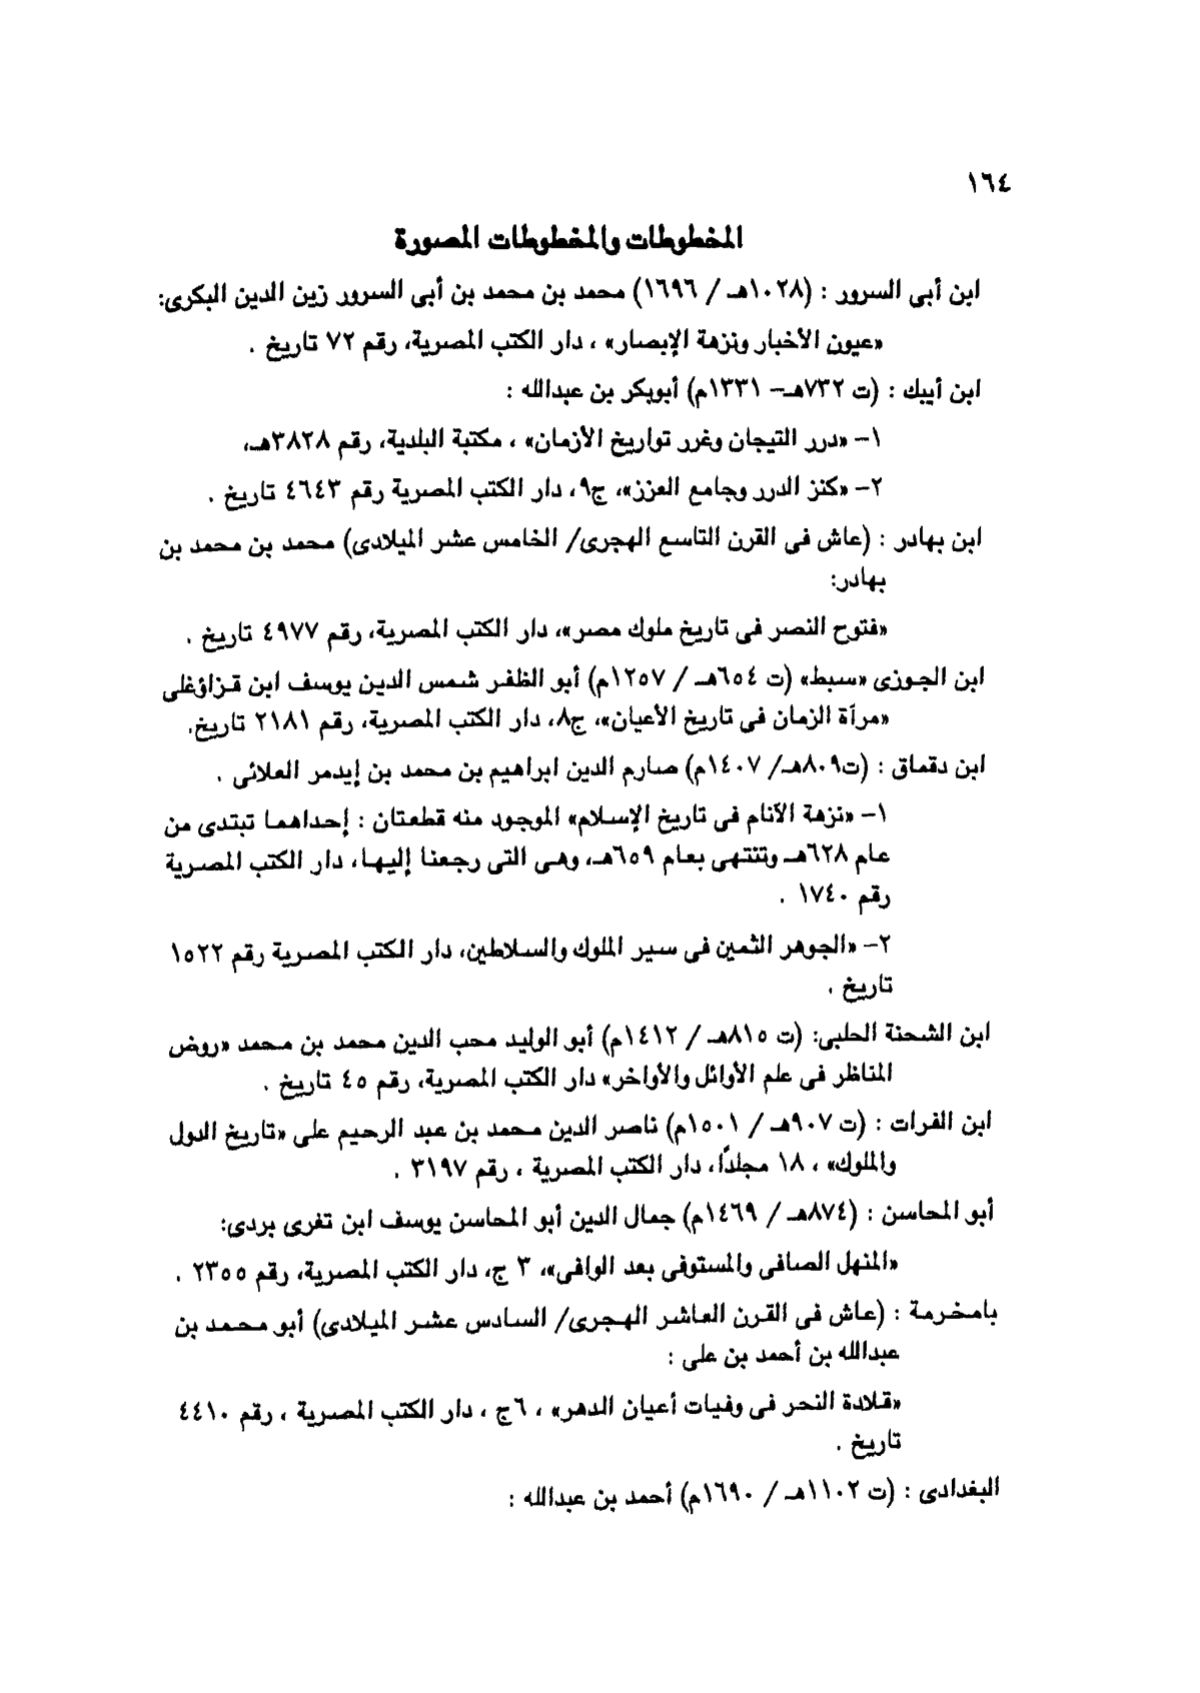 ١٦٤
المخطوطات والمخطوطات المصورة
ابن أبى السرور : (١٠٢٨هـ / ١٦٩٦) محمد بن محمد بن أبى السرور زين الدين البكرى:
«عيون الأخبار ونزهة الإبصار» ، دار الكتب المصرية، رقم ٧٢ تاريخ .
ابن أيبك : (ت ٧٣٢هـ– ١٣٣١م) أبوبكر بن عبدالله :
١– «درر التيجان وغرر تواريخ الأزمان» ، مكتبة البلدية، رقم ٣٨٢٨هـ،
٢– «كنز الدرر وجامع العزز»، ج٩، دار الكتب المصرية رقم ٤٦٤٣ تاريخ .
ابن بهادر : (عاش فى القرن التاسع الهجرى/ الخامس عشر الميلادى) محمد بن محمد بن
بهادر:
«فتوح النصر فى تاريخ ملوك مصر»، دار الكتب المصرية، رقم ٤٩٧٧ تاريخ .
ابن الجوزى «سبط» (ت ٦٥٤هـ / ١٢٥٧م) أبو الظفر شمس الدين يوسف ابن قزاؤغلى
«مرآة الزمان فى تاريخ الأعيان»، ج٨، دار الكتب المصرية، رقم ٢١٨١ تاريخ.
ابن دقماق : (ت٨٠٩هـ/ ١٤٠٧م) صارم الدين ابراهيم بن محمد بن إيدمر العلائى .
١– «نزهة الآنام فى تاريخ الإسلام» الموجود منه قطعتان : إحداهما تبتدى من
عام ٦٢٨هـ وتنتهى بعام ٦٥٩هـ، وهى التى رجعنا إليها، دار الكتب المصرية
رقم ١٧٤٠ .
٢– «الجوهر الثمين فى سير الملوك والسلاطين، دار الكتب المصرية رقم ١٥٢٢
تاريخ .
ابن الشحنة الحلبى: (ت ٨١٥هـ / ١٤١٢م) أبو الوليد محب الدين محمد بن محمد «روض
المناظر فى علم الأوائل والأواخر» دار الكتب المصرية، رقم ٤٥ تاريخ .
ابن الفرات : (ت ٩٠٧هـ / ١٥٠١م) ناصر الدين محمد بن عبد الرحيم على «تاريخ الدول
والملوك» ، ١٨ مجلدًا، دار الكتب المصرية ، رقم ٣١٩٧ .
أبو المحاسن : (٨٧٤هـ / ١٤٦٩م) جمال الدين أبو المحاسن يوسف ابن تغرى بردى:
«المنهل الصافى والمستوفى بعد الوافى»، ٣ ج، دار الكتب المصرية، رقم ٢٣٥٥ .
بامخرمة : (عاش فى القرن العاشر الهجرى/ السادس عشر الميلادى) أبو محمد بن
عبدالله بن أحمد بن على :
«قلادة النحر فى وفيات أعيان الدهر» ، ٦ج ، دار الكتب المصرية ، رقم ٤٤١٠
تاريخ .
البغدادى : (ت ١١٠٢هـ / ١٦٩٠م) أحمد بن عبدالله :